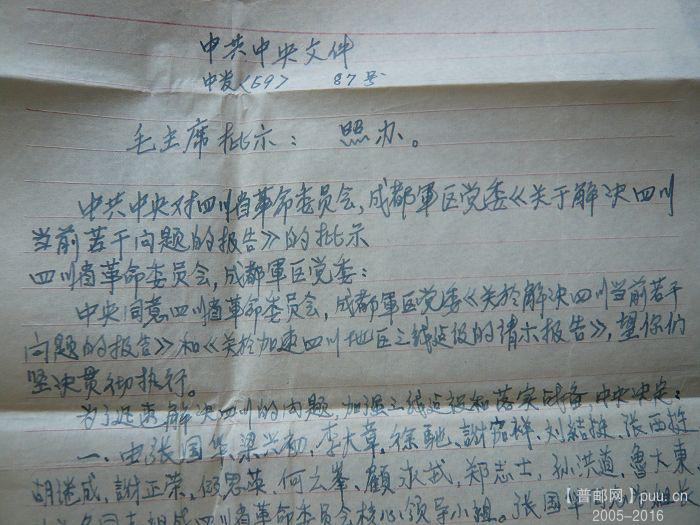 中共中央文件
中发〈59〉 87号
毛主席批示：照办。
中共中央对四川省革命委员会,成都軍区党委《关于解决四川
当前若干问题的报告》的批示
四川省革命委员会,成都軍区党委:
中央同意四川省革命委员会,成都軍区党委《关於解决四川当前若干
问题的报告》和《关於加速四川地区三线建设的请示报告》,望你们
坚决贯彻执行。
为了迅速解决四川的问题,加强三线建设和落实战备,中央决定:
一、由张国华、梁兴初、李大章、徐馳、謝家祥、刘結挺、张西挺
胡继成、謝正荣、何云峯、顧永武、郑志士、孙洪道、魯大東
同志組成四川省革命委员会核心领导小组。张国华
【普邮网】puu.cn
2005-2016